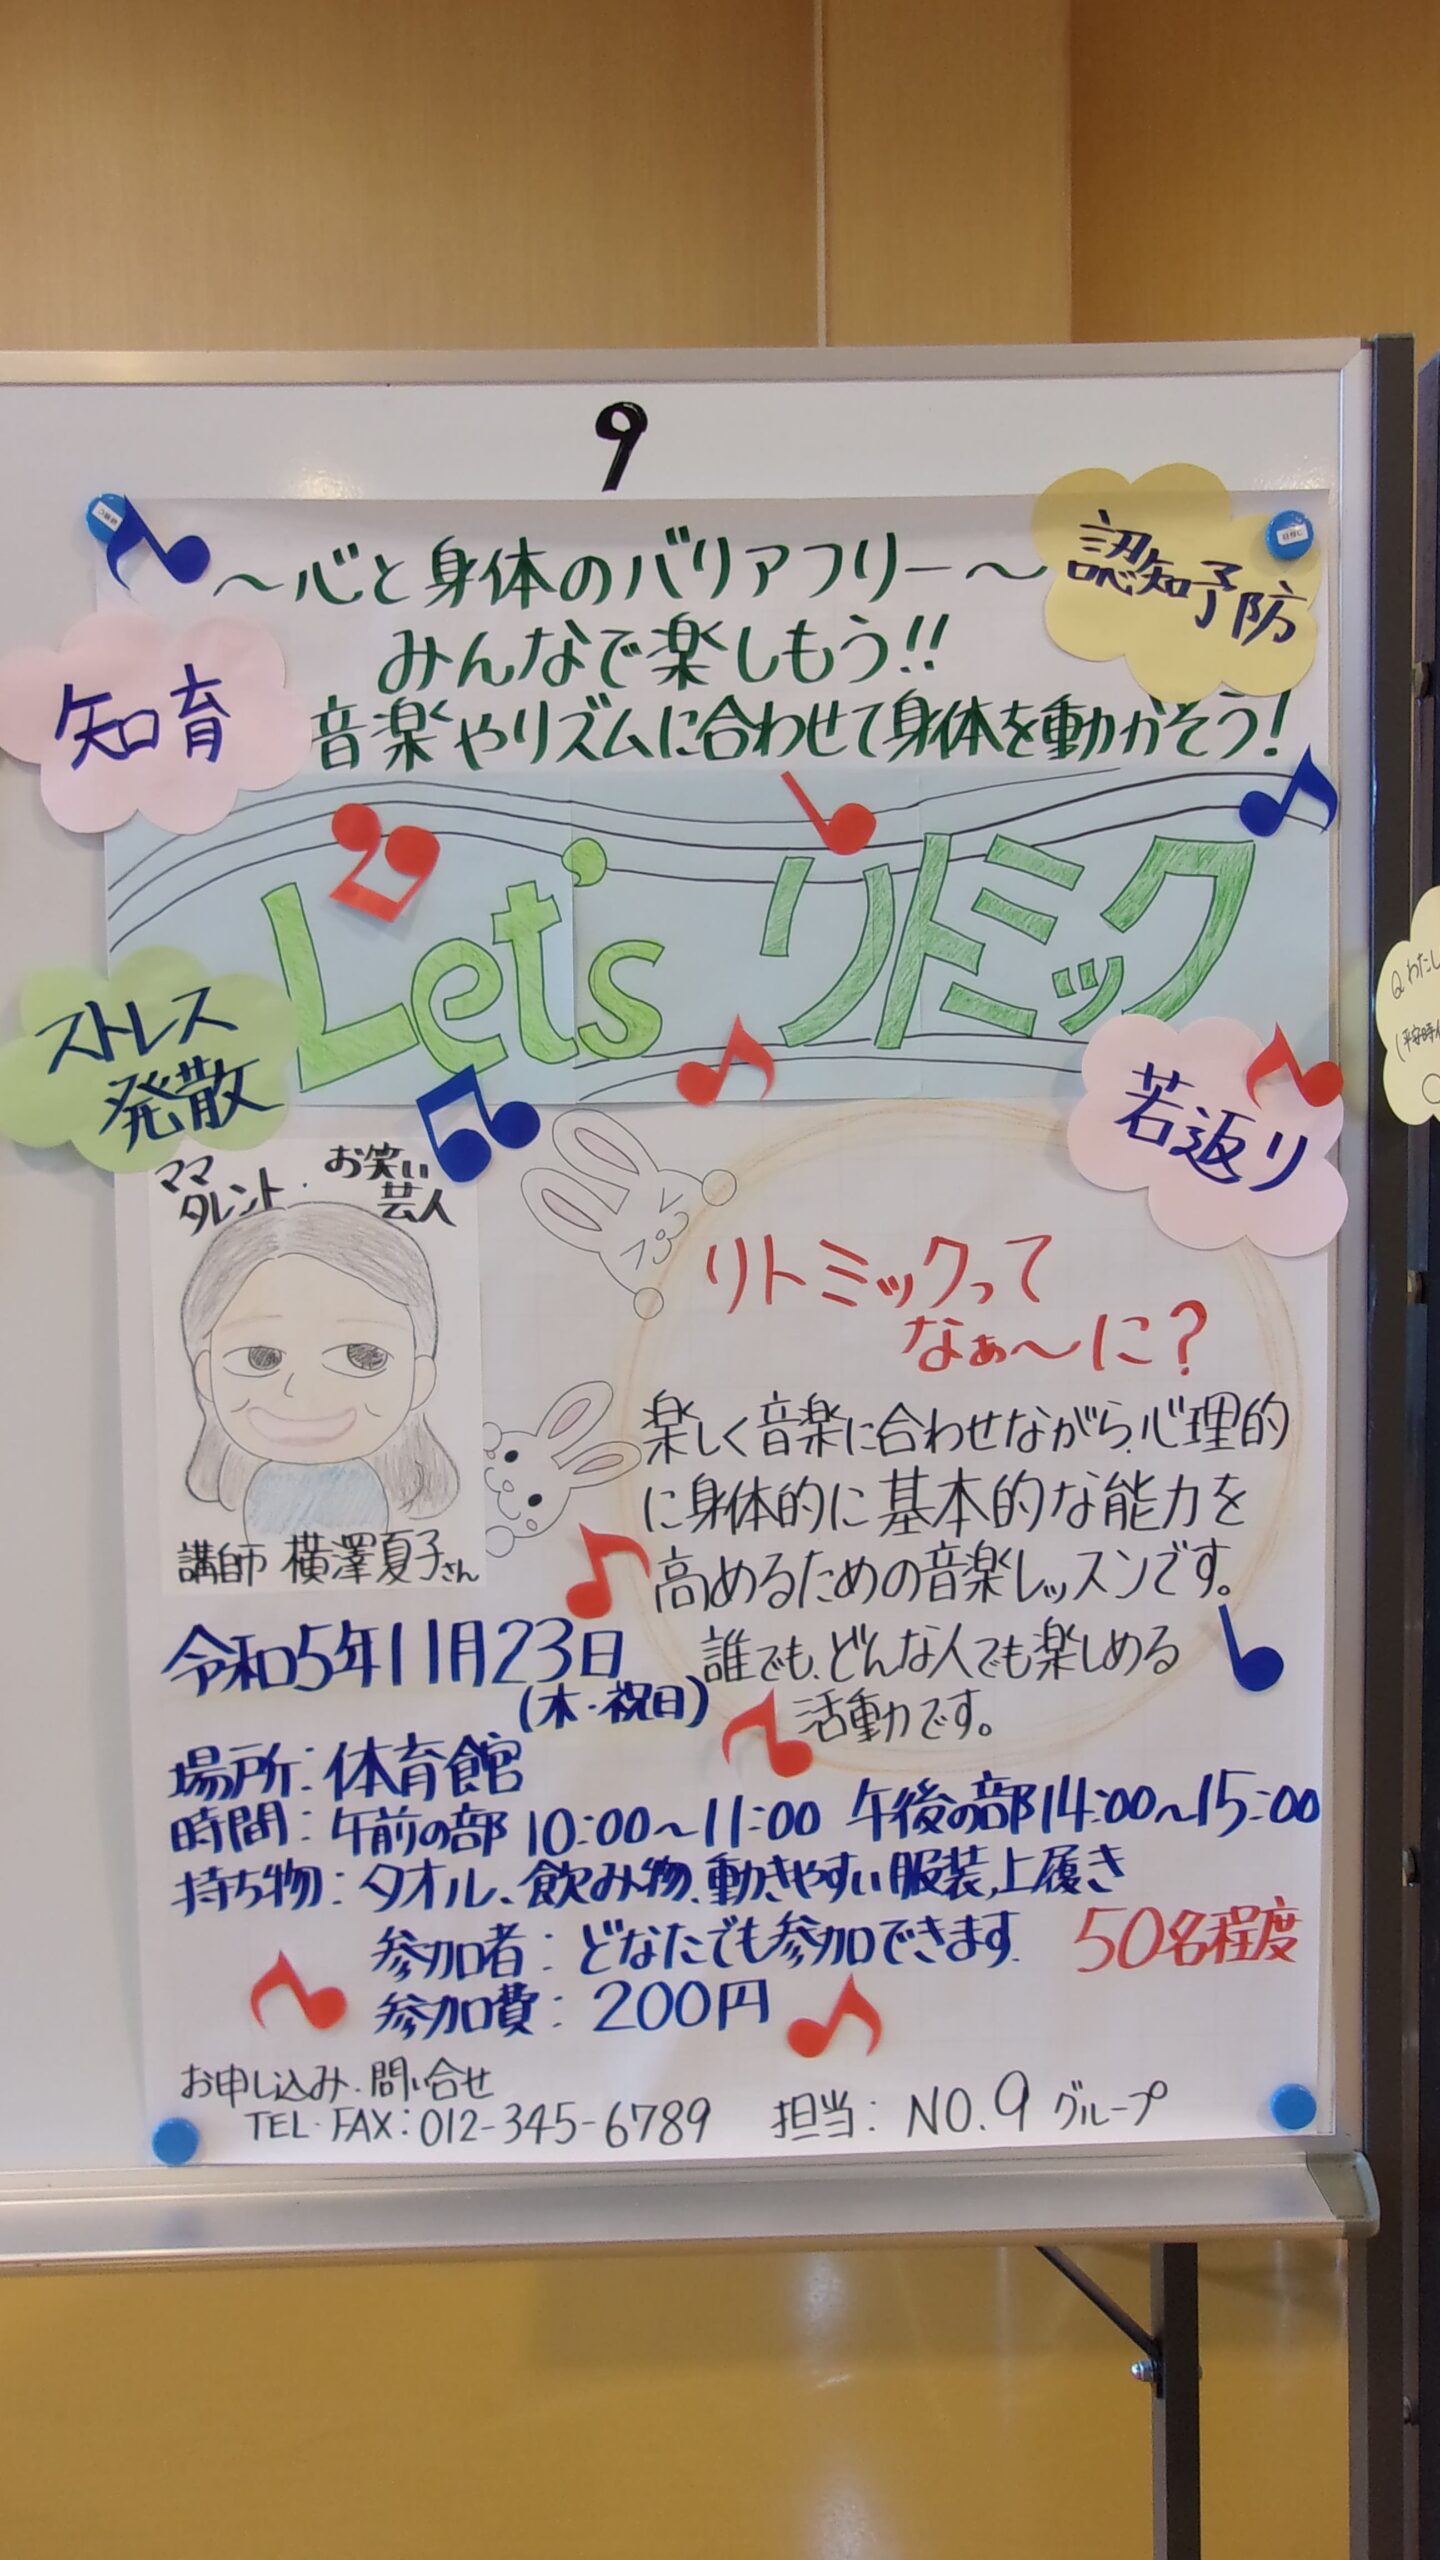 9
～心と身体のバリアフリー～
認知予防
みんなで楽しもう!!
知育
音楽やリズムに合わせて身体を動かそう!
Let's リトミック
ストレス
発散
若返り
ママ
タレント・お笑い
芸人
リトミックって
なぁ～に?
楽しく音楽に合わせながら、心理的
に身体的に基本的な能力を
高めるための音楽レッスンです。
誰でも、どんな人でも楽しめる
活動です。
講師 横澤夏子さん
令和5年11月23日
(木・祝日)
場所:体育館
時間:午前の部 10:00～11:00 午後の部14:00～15:00
持ち物:タオル、飲み物、動きやすい服装、上履き
参加者:どなたでも参加できます. 50名程度
参加費:200円
お申し込み・問い合せ
TEL・FAX:012-345-6789 担当:NO.9 グループ
Q わたし
(平安時